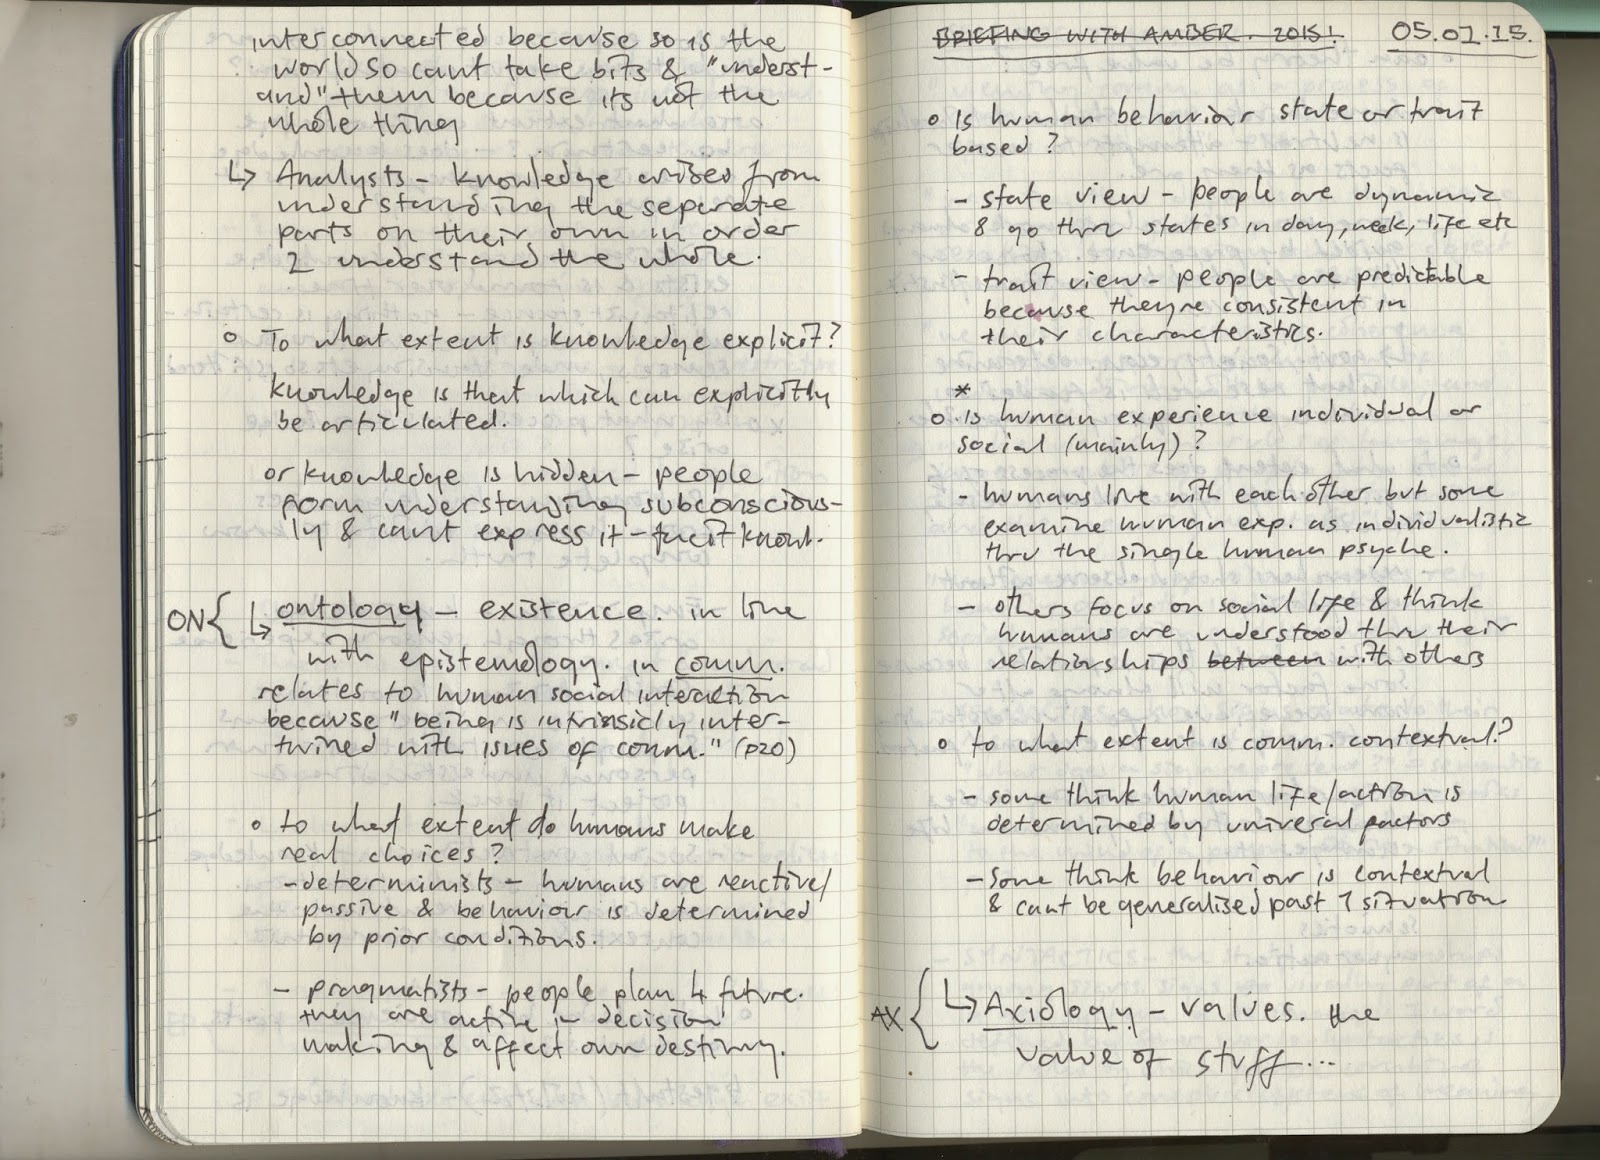 interconnected because so is the
world so cant take bits & "underst-
and" them because its not the
whole thing
↳ Analysts - knowledge arises from
understanding the seperate
parts on their own in order
2 understand the whole.
o To what extent is knowledge explicit?
knowledge is that which can explicitly
be articulated.
or knowledge is hidden - people
form understanding subconscious-
ly & cant express it - tacit knowl.
ON { ↳ ontology - existence. in line
with epistemology. in comm.
relates to human social interaction
because "being is intrinsicly inter-
twined with issues of comm." (p20)
o to what extent do humans make
real choices?
- determinists - humans are reactive/
passive & behaviour is determined
by prior conditions.
- pragmatists - people plan 4 future.
they are active in decision
making & affect own destiny.
BRIEFING WITH AMBER. 2015! 05.01.15.
o Is human behaviour state or trait
based?
- state view - people are dynamic
& go thru states in day, week, life etc
- trait view - people are predictable
because theyre consistent in
their characteristics.
*
o Is human experience individual or
social (mainly)?
- humans live with each other but some
examine human exp. as individualistic
thru the single human psyche.
- others focus on social life & think
humans are understood thru their
relationships between with others
o to what extent is comm. contextual?
- some think human life/action is
determined by univeral factors
- some think behaviour is contextual
& cant be generalised past 1 situation
AX { ↳ Axiology - values. the
value of stuff...